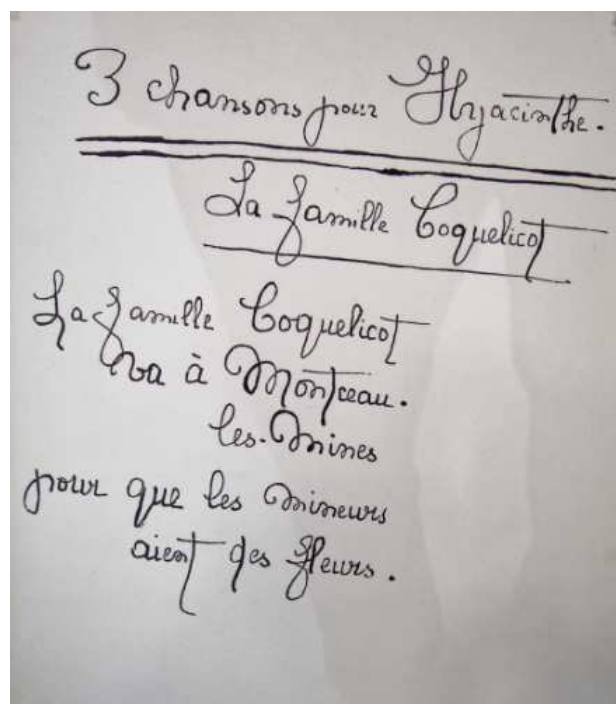 3 chansons pour Hyacinthe.
La famille Coquelicot
La famille Coquelicot
va à Montceau.
les-Mines
pour que les Mineurs
aient des fleurs.